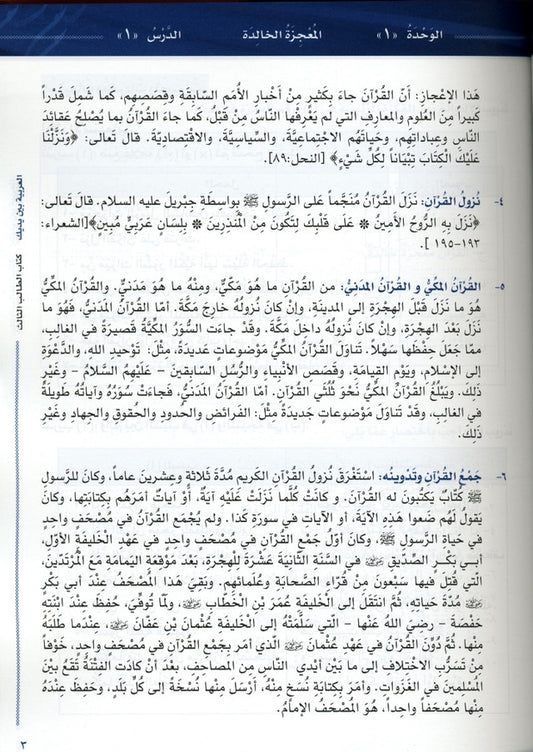 الوَحْدَةُ «١» المُعْجِزَةُ الخالِدَة الدَّرْسُ «١»
هَذا الإعْجازِ: أنّ القُرْآنَ جاءَ بِكَثيرٍ مِنْ أخْبارِ الأُمَمِ السّابِقَةِ وقِصَصِهِم، كَما شَمِلَ قَدْراً
كَبيراً مِنَ العُلومِ والمعارِفِ التي لم يَعْرِفْها النّاسُ مِنْ قَبْلُ، كَما جاءَ القُرْآنُ بما يُصْلِحُ عَقائدَ
النّاسِ وعِباداتِهِم، وحَياتَهُم الاجْتِماعِيَّةَ، والسِّياسِيَّةَ، والاقْتِصادِيَّةَ. قالَ تَعالى: ﴿وَنَزَّلْنَا
عَلَيْكَ الْكِتَابَ تِبْيَانًا لِكُلِّ شَيْءٍ﴾ [النحل:٨٩].
٤- نُزولُ القُرْآنِ: نَزَلَ القُرْآنُ مُنَجَّماً عَلى الرَّسولِ ﷺ بِواسِطَةِ جِبْريلَ عليه السلام. قالَ تَعالى:
﴿نَزَلَ بِهِ الرُّوحُ الأَمِينُ ۞ عَلَى قَلْبِكَ لِتَكُونَ مِنَ الْمُنْذِرِينَ ۞ بِلِسَانٍ عَرَبِيٍّ مُبِينٍ﴾[الشعراء:
١٩٣-١٩٥ ].
٥- القُرْآنُ المكِّيُّ و القُرْآنُ المَدَنِيُّ: من القُرْآنِ ما هُوَ مَكِّيٌّ، ومِنْهُ ما هُوَ مَدَنِيٌّ. والقُرْآنُ المكِّيُّ
هُوَ ما نَزَلَ قَبْلَ الهِجْرَةِ إلى المدينَةِ، وإنْ كانَ نُزولُهُ خارِجَ مَكَّةَ. أمّا القُرْآنُ المَدَنيُّ، فَهُوَ ما
نَزَلَ بَعْدَ الهِجْرَةِ، وإنْ كانَ نُزولُهُ داخِلَ مَكَّةَ. وقَدْ جاءَت السُّوَرُ المكِّيَّةُ قَصيرَةً في الغالِبِ،
ممّا جَعَلَ حِفْظَها سَهْلاً. تَناوَلَ القُرْآنُ المكِّيُّ مَوْضوعاتٍ عَديدَةً، مِثْلَ: تَوْحيدِ اللهِ، والدَّعْوَةِ
إلى الإسْلامِ، ويَوْمِ القِيامَةِ، وقَصَصِ الأنْبِياءِ والرُّسُلِ السّابِقينَ - عَلَيْهِمُ السَّلامُ - وغَيْرِ
ذَلِكَ. ويَبْلُغُ القُرآنُ المكِّيُّ نَحْوَ ثُلُثَيِ القُرْآنِ. أمّا القُرْآنُ المَدَنيُّ، فَجاءَتْ سُوَرُهُ وآياتُهُ طَويلَةً
في الغالِبِ، وقَدْ تَناوَلَ مَوْضوعاتٍ جَديدَةً مِثْلَ: الفَرائضِ والحُدودِ والحُقوقِ والجِهادِ وغَيْرِ
ذَلِكَ.
٦- جَمْعُ القُرآنِ وتَدْوينُه: اسْتَغْرَقَ نُزولُ القُرْآنِ الكَريمِ مُدَّةَ ثَلاثَةٍ وعِشْرينَ عاماً، وكانَ للرَّسولِ
ﷺ كُتّابٌ يَكْتُبونَ له القُرْآنَ. و كانَتْ كُلَّما نَزَلَتْ عَلَيْهِ آيَةٌ، أوْ آياتٌ أمَرَهُم بِكِتابَتِها، وكانَ
يَقولُ لَهُم ضَعوا هَذِهِ الآيَةَ، أو الآياتِ في سورَةِ كَذا. ولم يُجْمَعِ القُرْآنُ في مُصْحَفٍ واحِدٍ
في حَياةِ الرَّسولِ ﷺ، وكانَ أوَّلُ جَمْعِ القُرآنِ في مُصْحَفٍ واحِدٍ في عَهْدِ الخَليفَةِ الأوَّلِ،
أبي بَكْرٍ الصِّدّيقِ رضي الله عنه في السَّنَةِ الثّانِيَةَ عَشْرَةَ لِلْهِجْرَةِ، بَعْدَ مَوْقِعَةِ اليَمامَةِ مَعَ المُرْتَدّينَ،
الَّتي قُتِلَ فيها سَبْعونَ مِنْ قُرّاءِ الصَّحابَةِ وعُلَمائهِم. وبَقِيَ هَذا المُصْحَفُ عِنْدَ أبي بَكْرٍ
رضي الله عنه مُدَّةَ حَياتِهِ، ثُمَّ انْتَقَلَ إلى الْخَليفَةِ عُمَرَ بْنِ الْخَطّابِ رضي الله عنه، ولَمّا تُوفِّيَ، حُفِظَ عِنْدَ ابْنَتِهِ
حَفْصَةَ - رضِيَ اللهُ عَنْها - الَّتي سَلَّمَتْهُ إلى الْخَليفَةِ عُثْمانَ بْنِ عَفّانَ رضي الله عنه، عِنْدَما طَلَبَهُ
مِنْها. ثُمَّ دُوِّنَ القُرْآنُ في عَهْدِ عُثْمانَ رضي الله عنه الَّذي أمَرَ بِجَمْعِ القُرْآنِ في مُصْحَفٍ واحِدٍ، خَوْفاً
مِنْ تَسَرُّبِ الاخْتِلافِ إلى ما بَيْنَ أيْدي النّاسِ مِن المصاحِفِ، بَعْدَ أنْ كادَت الفِتْنَةُ تَقَعُ بَيْنَ
المُسْلِمينَ في الغَزَواتِ. وأمَرَ بِكِتابَةِ نُسَخٍ مِنْهُ، أرْسَلَ مِنْها نُسْخَةً إلى كُلِّ بَلَدٍ، وحَفِظَ عِنْدَهُ
مِنْها مُصْحَفاً واحِداً، هُوَ المُصْحَفُ الإمامُ.
العربية بين يديك كتاب الطالب الثالث
٣